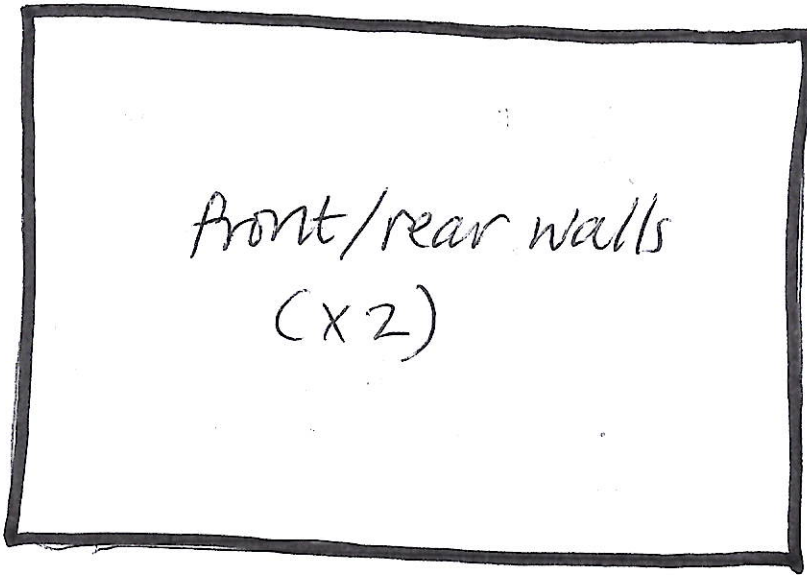 front/rear walls
(x2)